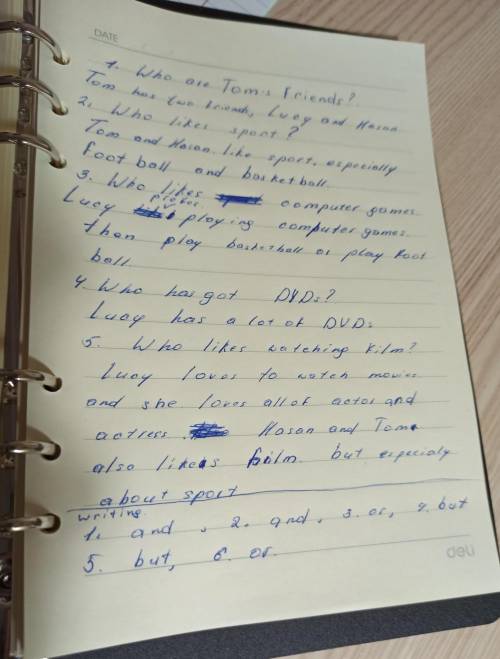 DATE
1. Who are Tom's friends?
Tom has two friends, Lucy and Hasan.
2. Who likes sport?
Tom and Hasan like sport, especially
football and basketball.
3. Who likes computer games
prefer
Lucy playing computer games
than play basketball or play foot
ball.
4. Who has got DVDs?
Lucy has a lot of DVDs
5. Who likes watching film?
Lucy loves to watch movies
and she loves all of actor and
actress. Hasan and Tom
also likes film but especialy
about sport
writing.
1. and, 2. and, 3. or, 4. but
5. but, 6. or.
deli